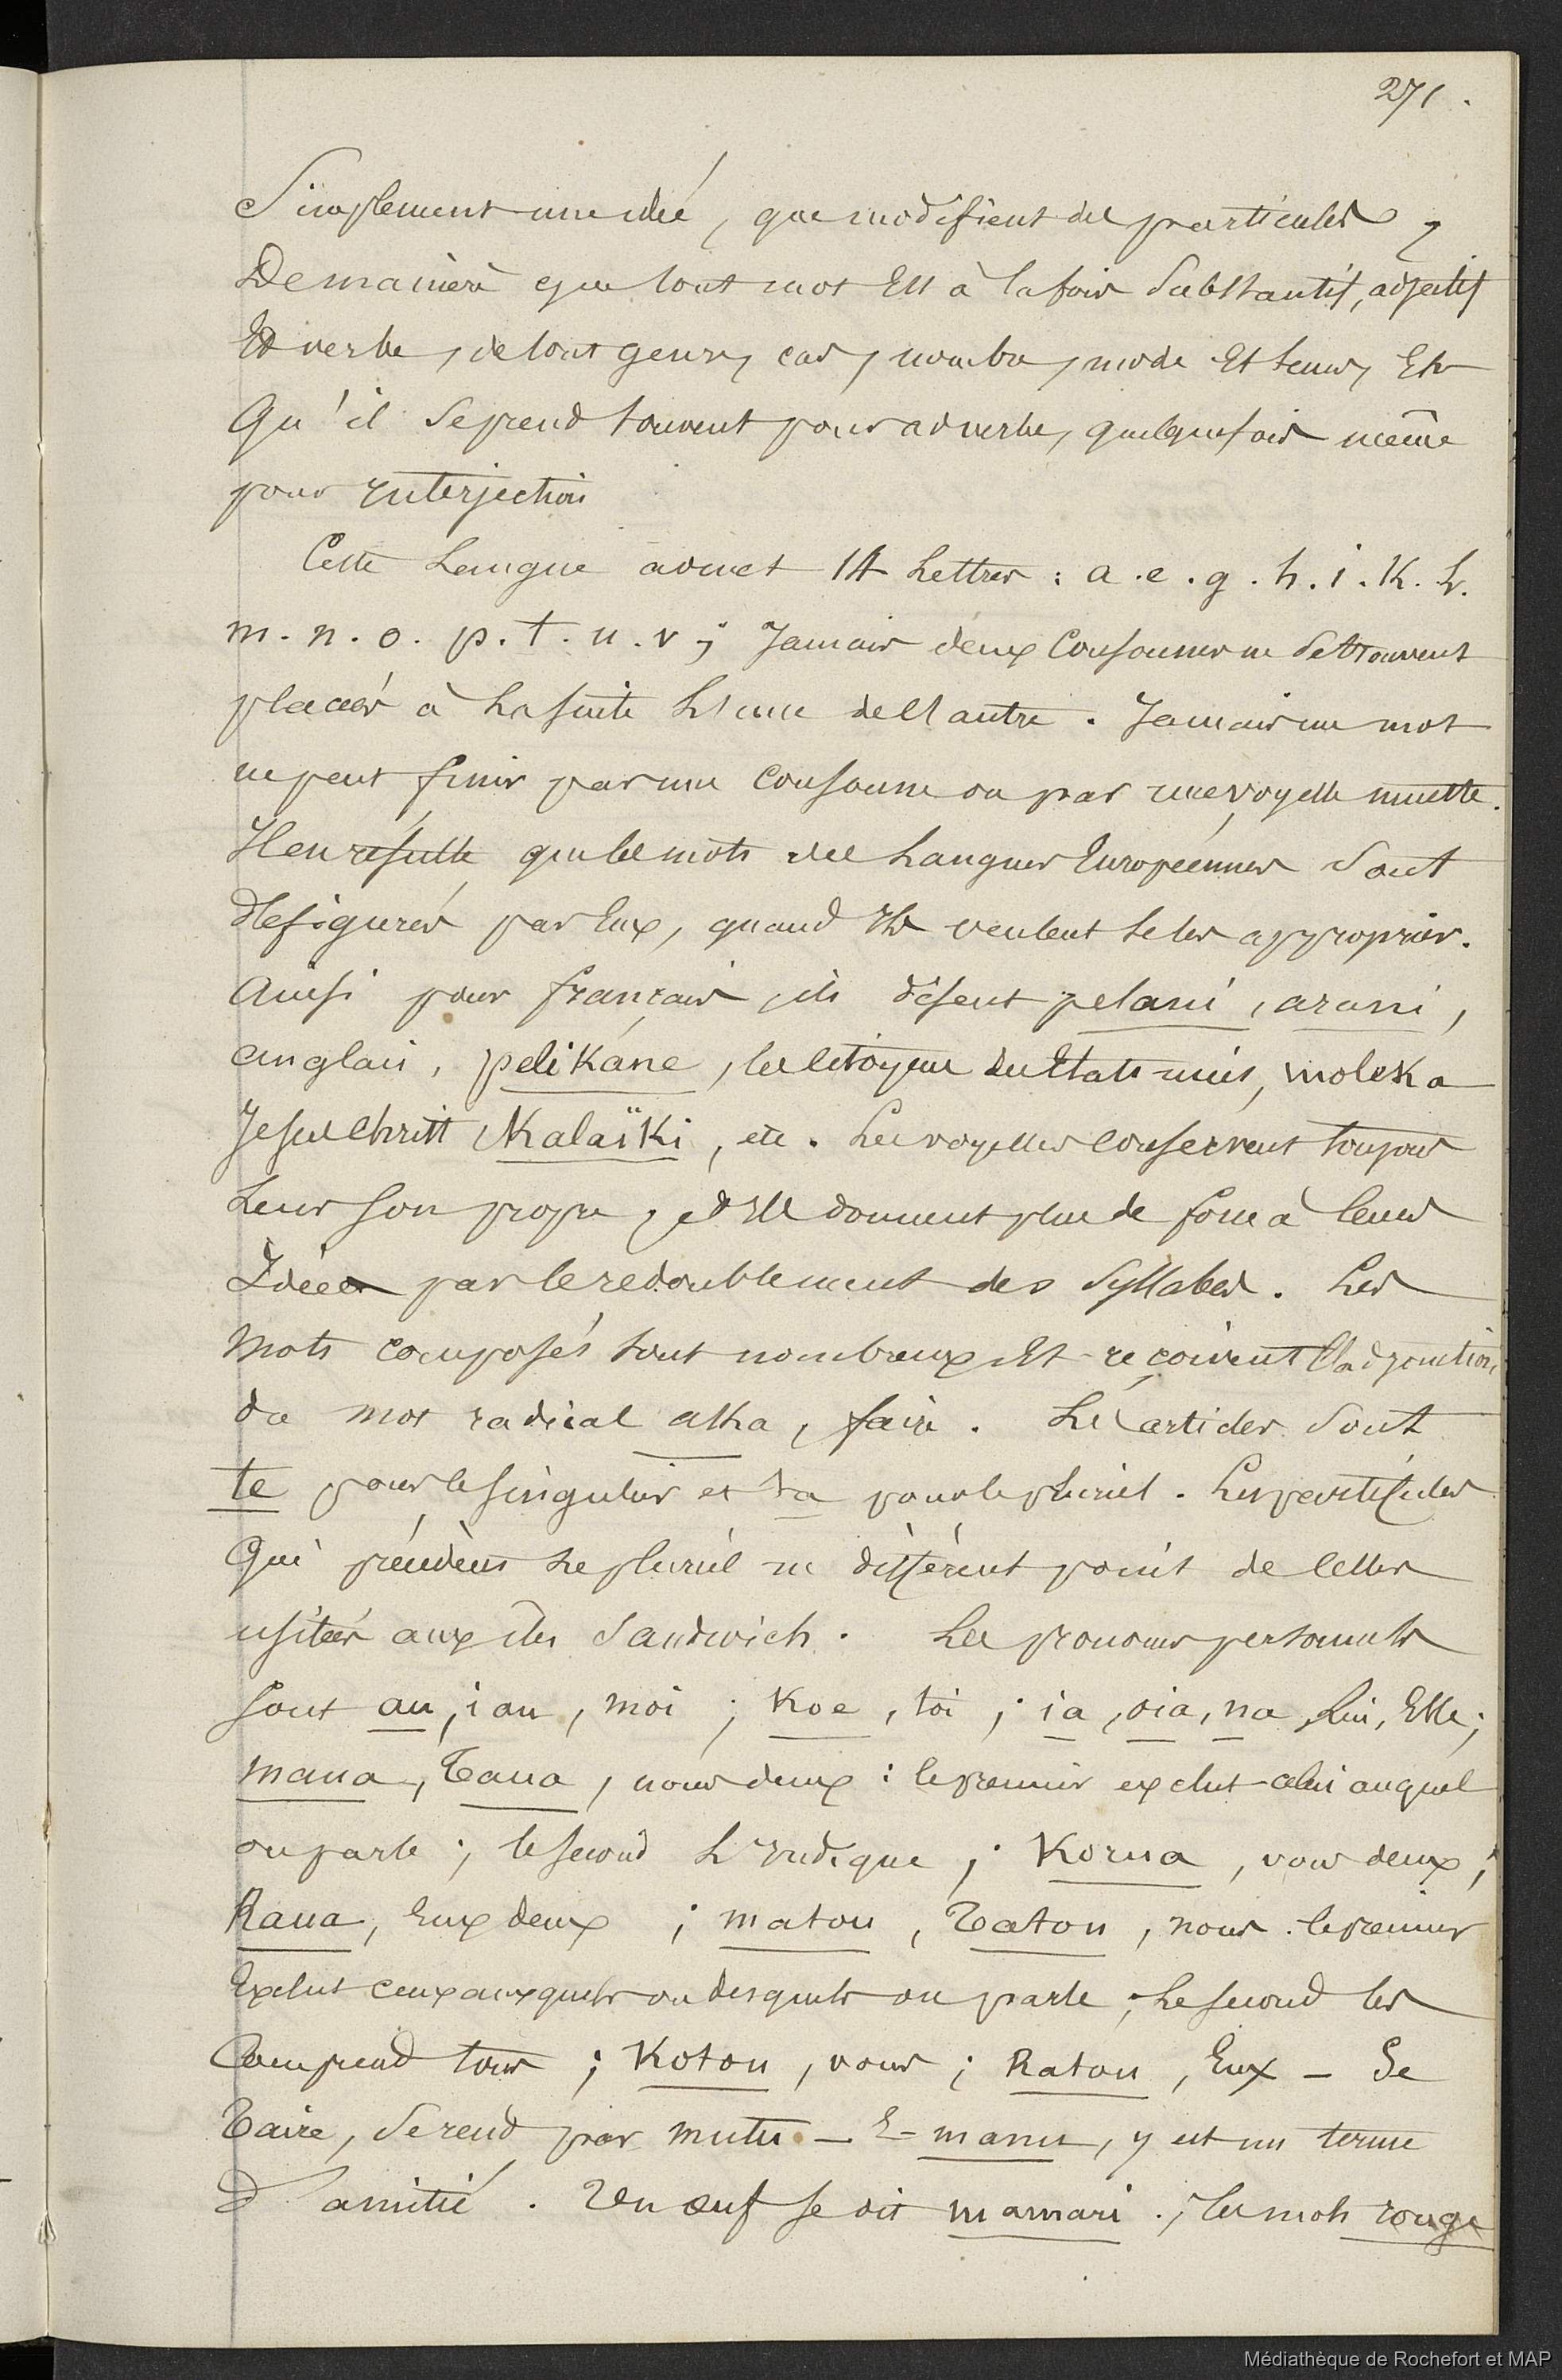 271.
Simplement une idée, que modifient des particules,
De manière que tout mot Est à la fois Substantif, adjectif
Et verbe, de tout genre, cas, nombre, mode Et tems, Et
Qu'il Se prend souvent pour adverbe, quelquefois même
pour Interjection
Cette Langue admet 14 Lettres : a. e. g. h. i. K. L.
m. n. o. p. t. u. v ; Jamais deux Consonnes ne Se trouvent
placées à La suite L'une de l'autre. Jamais un mot
ne peut finir par une Consonne ou par une voyelle muette.
Il en résulte que les mots des Langues Européennes Sont
défigurés par Eux, quand Ils veulent se les approprier.
Ainsi pour français, ils disent pelani, arani,
anglais, pelikane, les citoyens des Etats-unis, moleka
Jesus Christ Kalaïki, etc. Les voyelles conservent toujours
Leur son propre, et Ils donnent plus de force à leurs
Idées par le redoublement des Syllabes. Les
Mots composés sont nombreux Et reçoivent l'adjonction
du mot radical aka, faire. Les articles Sont
te pour le singulier et na pour le pluriel. Les particules
Qui précèdent Le pluriel ne diffèrent point de celles
usitées aux îles Sandwich. Les pronoms personnels
sont au, iau, moi ; Koe, toi ; ia, oia, na, Lui, Elle ;
maua, Taua, nous deux : le premier exclut celui auquel
on parle ; le second L'Indique ; Korua, vous deux ;
Raua, Eux deux ; matou, Tatou, nous : le premier
Exclut ceux auxquels ou desquels on parle ; Le second les
Comprend tous ; Kotou, vous ; Ratou, Eux – Se
Taire, Se rend par mutu – E-manu, y est un terme
d'amitié. Un œuf se dit mamari ; les mots rouge
Médiathèque de Rochefort et MAP